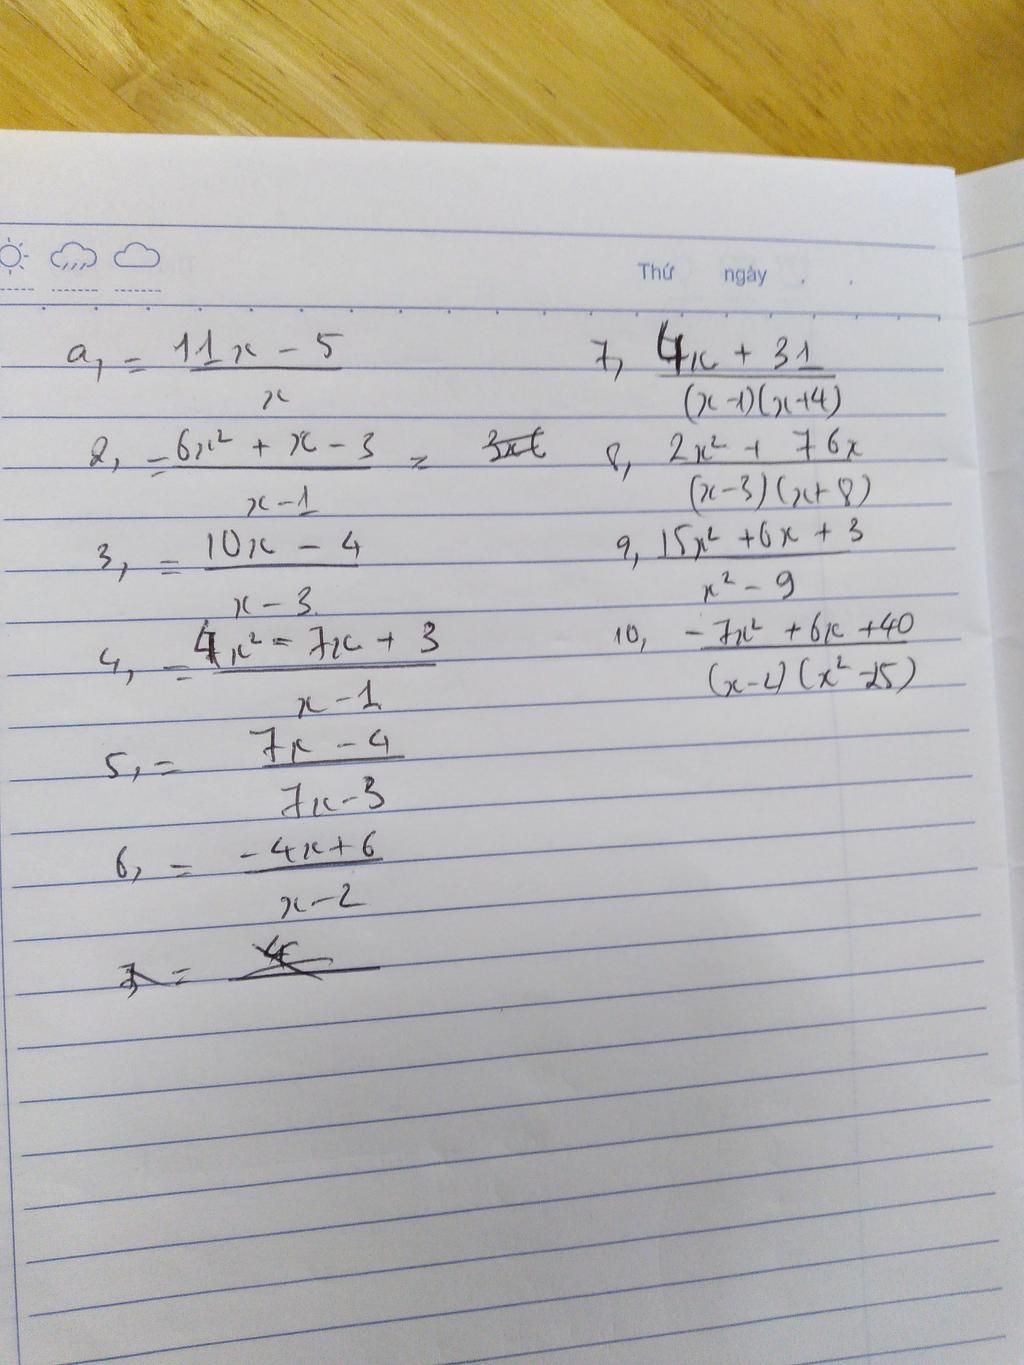 Thứ ngày . .
a, = (11x - 5)/x
2, = (6x² + x - 3)/(x - 1) =
3, = (10x - 4)/(x - 3)
4, = (4x² = 7x + 3)/(x - 1)
5, = (7x - 4)/(7x - 3)
6, = (-4x + 6)/(x - 2)
7, =
7, (4x + 31)/((x - 1)(x + 4))
8, (2x² + 76x)/((x - 3)(x + 8))
9, (15x² + 6x + 3)/(x² - 9)
10, (-7x² + 6x + 40)/((x - 2)(x² - 25))